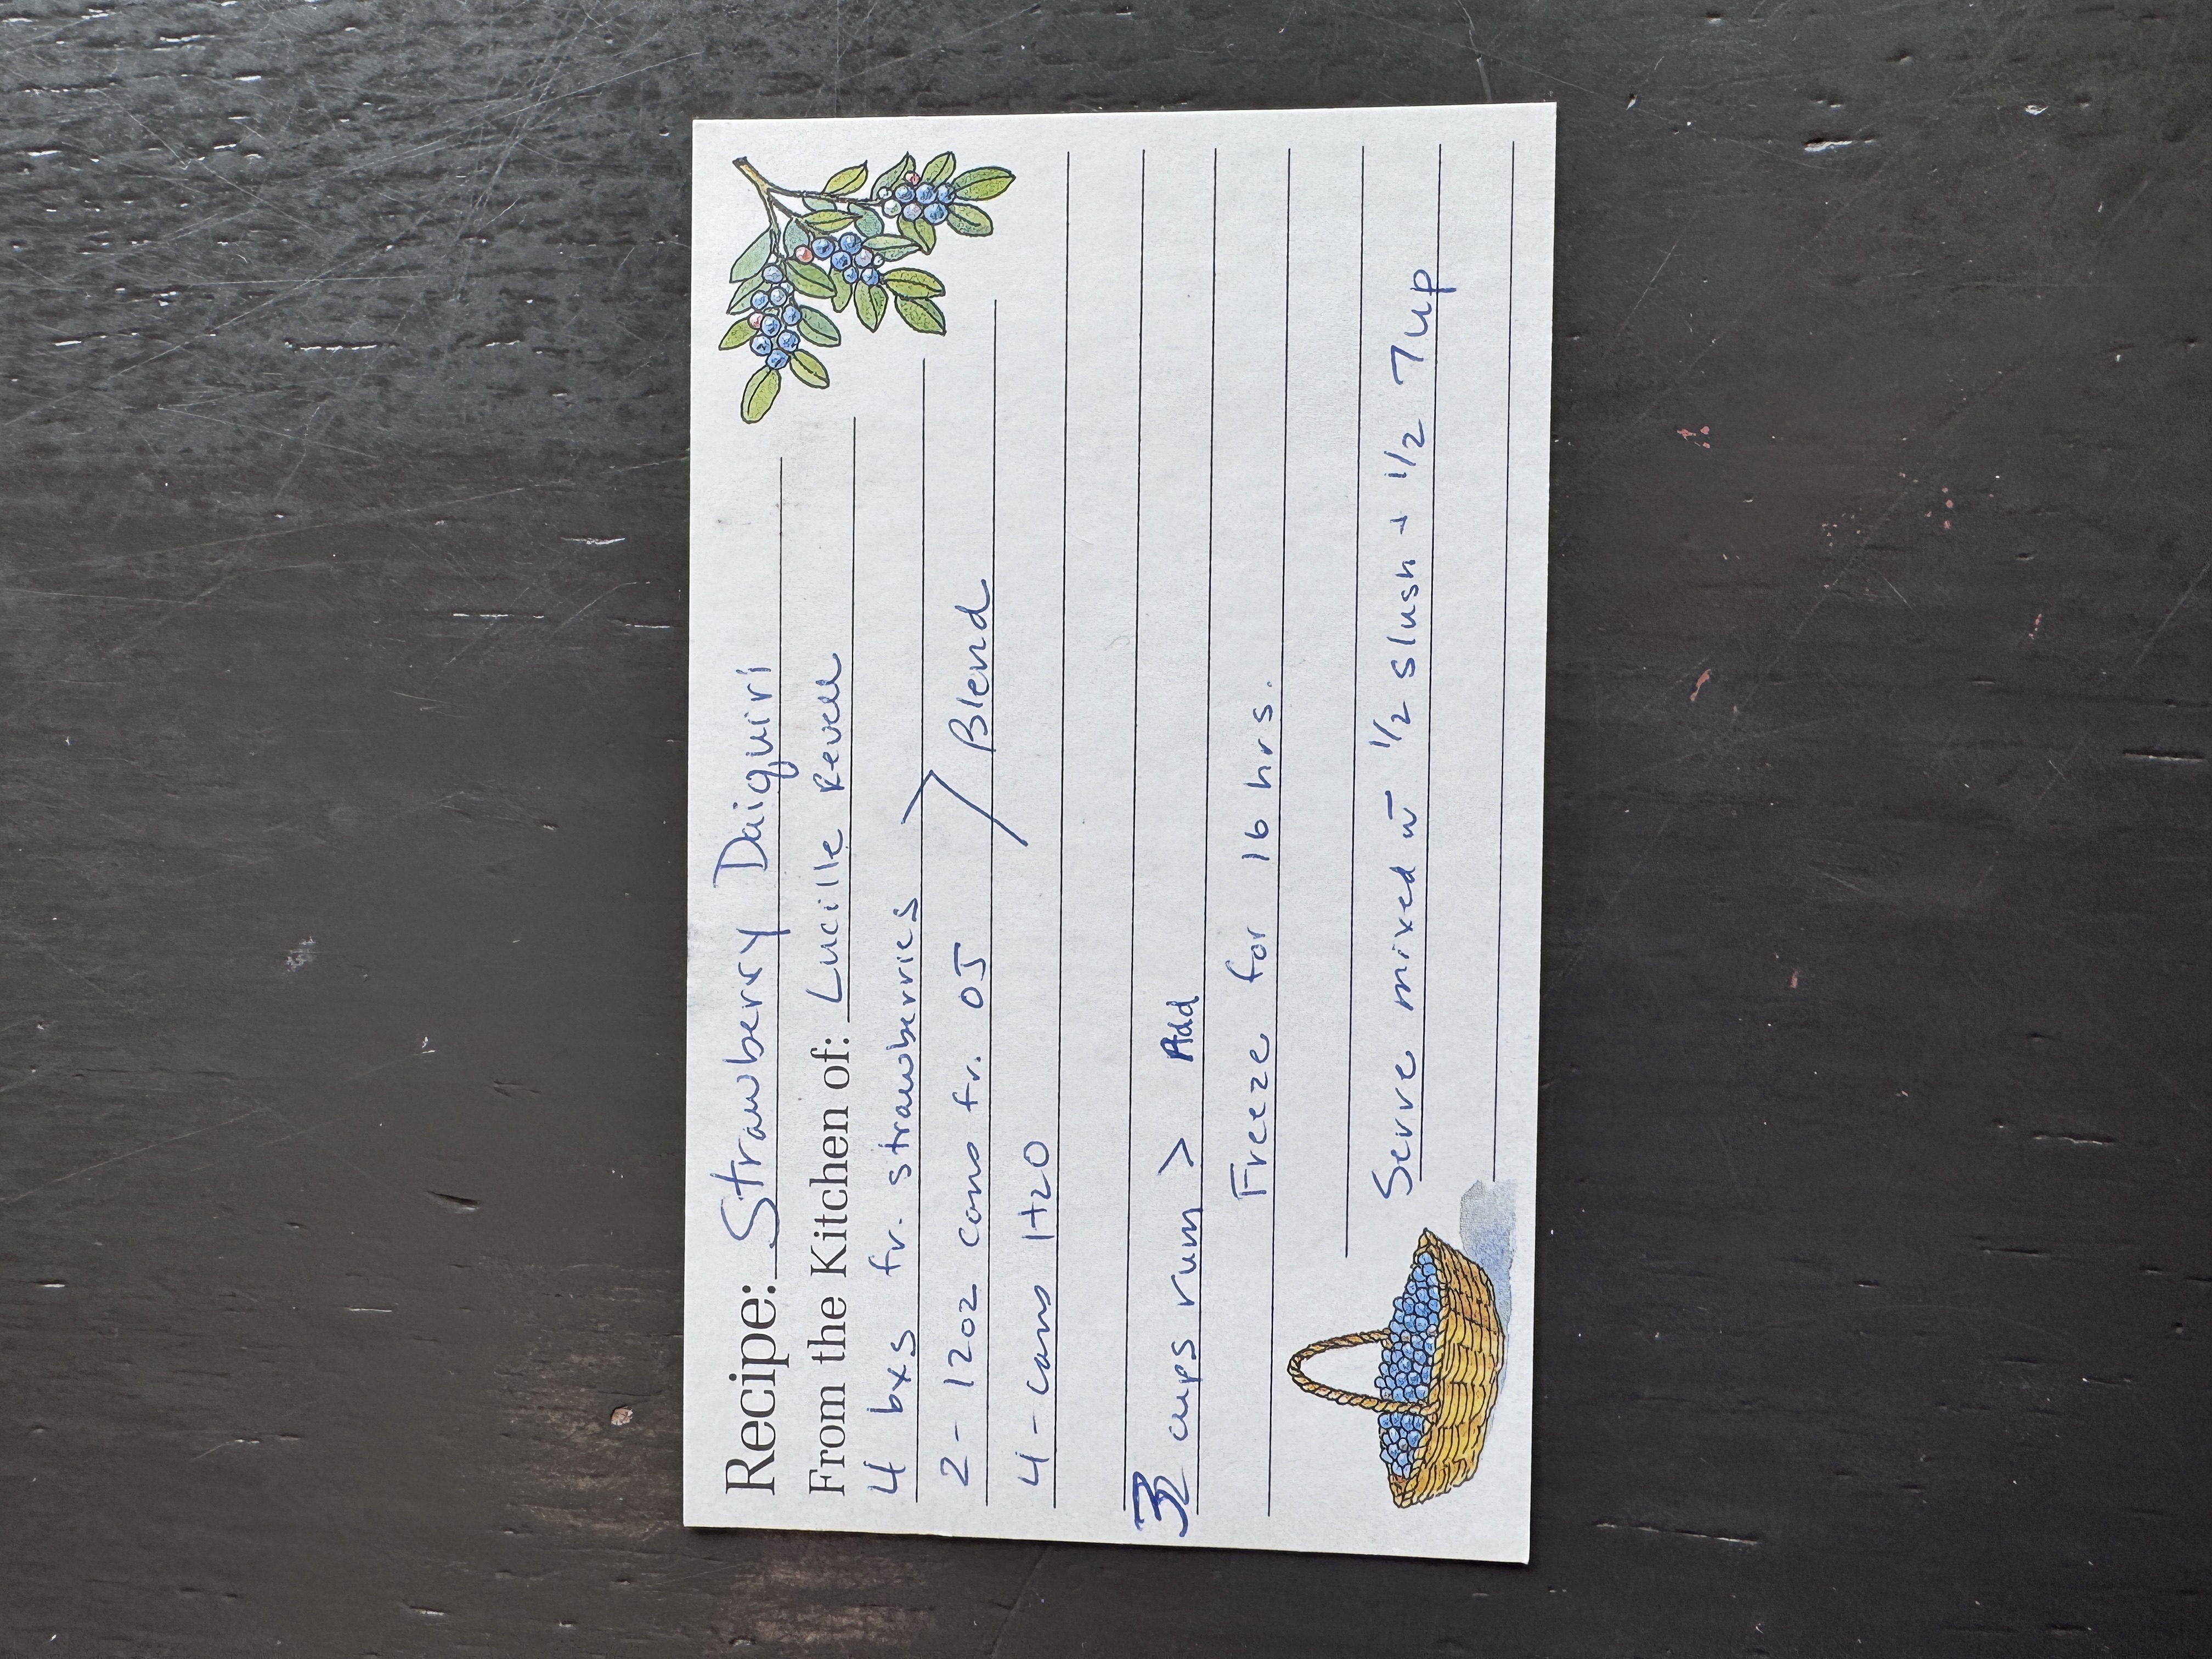 Recipe: Strawberry Daiquiri
From the Kitchen of: Lucille Revell
4 bxs fr. strawberries
2 - 12oz cans fr. OJ > Blend
4 - cans H2O
3 cups rum > Add
Freeze for 16 hrs.
Serve mixed w 1/2 slush + 1/2 7up